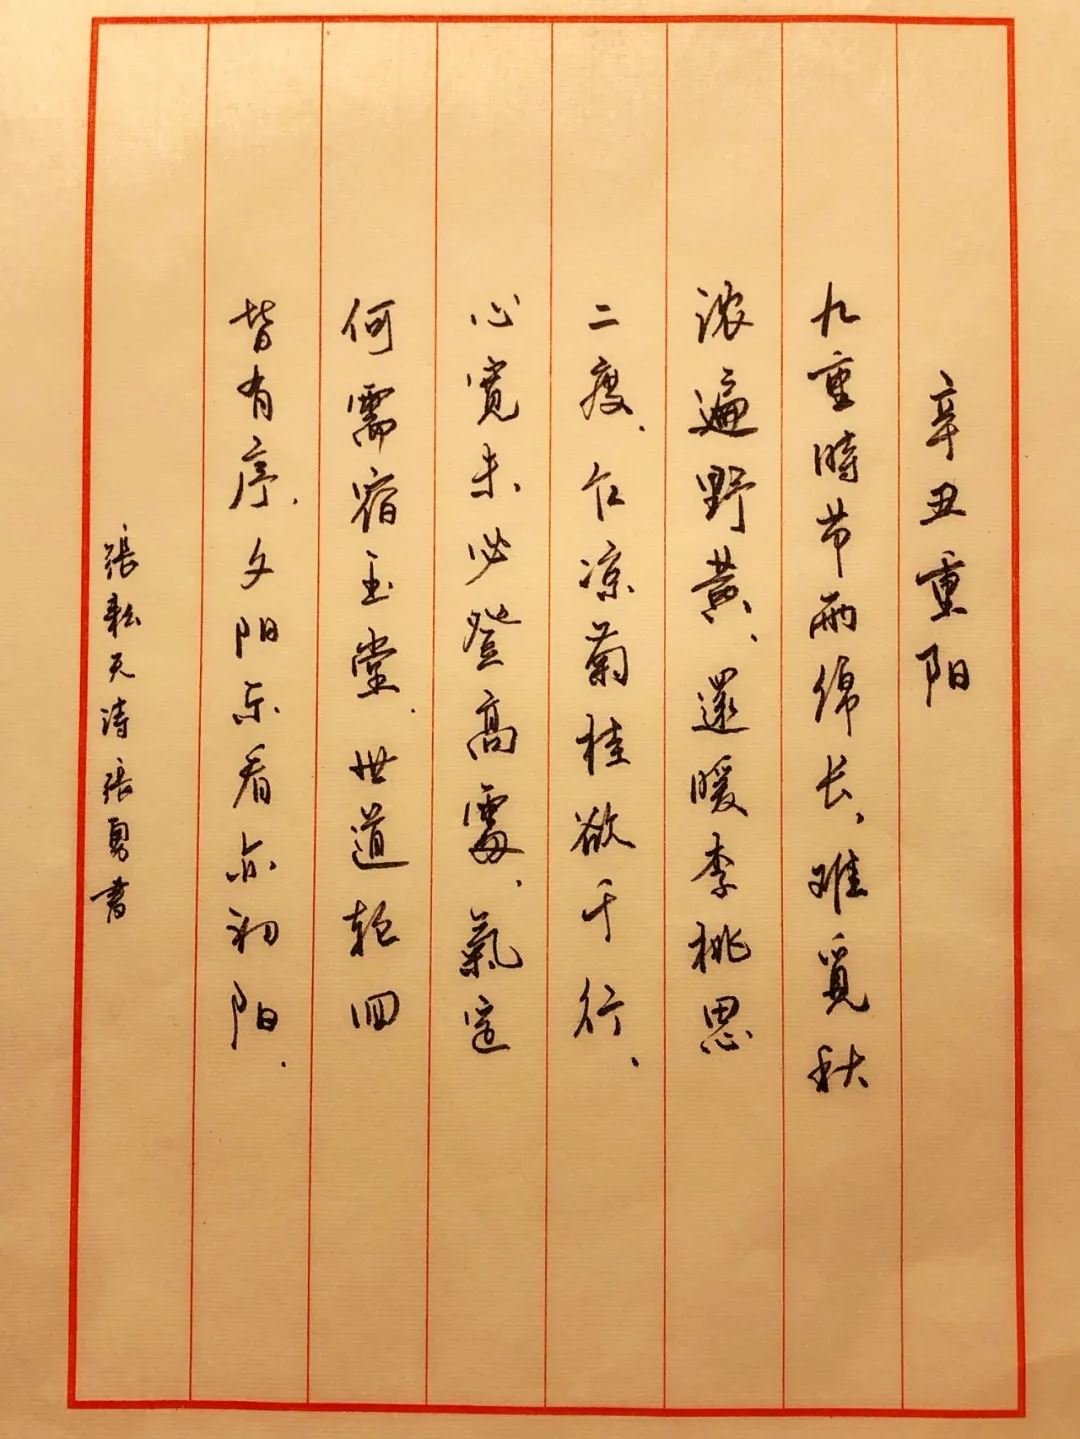 辛丑重阳
九重時节雨绵长，难覓秋
浓遍野黄，還暖李桃思
二度，乍凉菊桂欲千行，
心寛未必登高處，氣定
何需宿玉堂，世道轮回
皆有序，夕阳亦看亦初阳。
張耘天诗張勇書